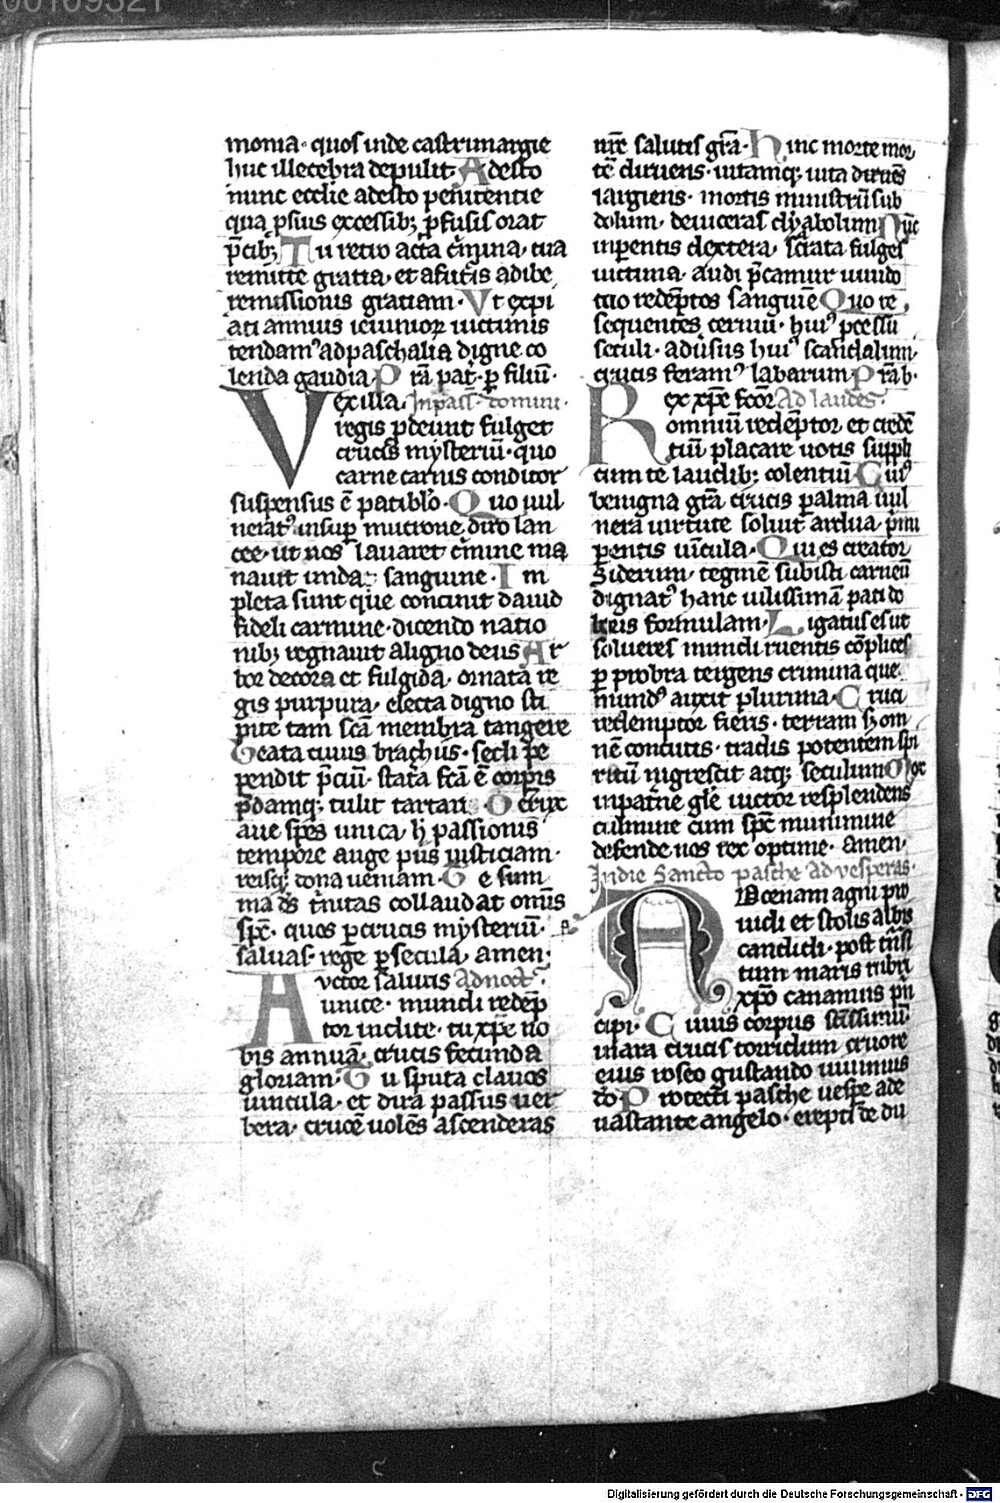 monia · quos inde castrimargie
huc illecebra depulit · Adesto
nunc ecclie adesto penitentie
qua ꝓsius excessibꝫ ꝓfusis orat
p̄cibꝫ Tu retro acta c̄mina · tua
remitte gratia · et a futis adibe
remissionis gratiam · Vt expi
ati annuis ieiunioꝝ uictimis
tendamꝰ ad paschalia digne co
lenda gaudia P ra pat · ꝑ filiū ·
Vexilla · In pass domini ·
regis ꝓdeunt fulget
crucis mysteriū · quo
carne carnis conditor
suspensus ē patiblo · Quo uul
neratꝰ insuꝑ mucrone diro lan
cee · ut nos lauaret c̄mine ma
nauit unda sanguine · Im
pleta sunt que concinit dauid
fideli carmine · dicendo natio
nibꝫ regnauit a ligno deus Ar
bor decora et fulgida · ornata re
gis purpura · electa digno sti
pite tam scā membra tangere
Beata cuius brachijs · secli p̄e
pendit p̄ciū · stat̄a fcā ē corꝑis
p̄damqꝫ tulit tartari O crux
aue spes unica · h̄ passionis
tempore auge piis iusticiam ·
reisqꝫ dona ueniam · Te sum
ma ds̄ t̄nitas collaudat omīs
sp̄c · quos ꝑ crucis mysteriū ·
saluas · rege ꝑ secula · amen ·
Auctor salutis Ad noct ·
unice · mundi redēp
tor inclite · tu xp̄e no
bis annuā · crucis fecunda
gloriam · Tu sputa clauos
uincula · et dira passus uer
bera · crucē uolēs ascenderas
nr̄e salutis gr̄a · Hinc morte mor
tē diruens · uitamqꝫ uita
largiens · mortis ministrū sub
dolum · deuiceras dyabolum Nūc
in parentis dextera · sc̄ata fulges
uictima · audi p̄camur uiuido
tuo redēptos sanguiē Quo te ·
sequentes ceruū · huiꝰ ꝓcessū
seculi · aduersus huiꝰ scandalum ·
crucis feramꝰ labarum P ra b ·
Rex xp̄e fcōr Ad laudes ·
omniū redēptor et credē
tiū placare uotis suppli
cum te laudibꝫ colentiū · Cuiꝰ
benigna gr̄a crucis ꝑ alma uul
nera uirtute soluit ardua · p̄mi
parentis uīcula · Qui es creator
siderum · tegmē subisti carneū
dignatꝰ hanc uilissimā pati do
loris formulam · Ligatus es ut
solueres mundi ruentis cōplices
ꝑ probra tergens crimina que
mundꝰ auxit plurima · Cruci
redemptor figeris · terram s; om
nē concutis · tradis potentem spi
ritū nigrescit atqꝫ seculum Mox
in pat̄ne gl̄e uictor resplendens
culmine cum sp̄c munimine
defende nos rex optime · amen ·
In die Sancto pasche ad vesperas ·
AD cenam agni pro
uidi et stolis albis
candidi · post tn̄si
tum maris rubri
xp̄o canamus pn̄
cipi · Cuius corpus sc̄issimū
in ara crucis torridum cruore
eius roseo gustando uiuimus
do Protecti pasche uesꝑe a de
uastante angelo · erepti de du
Digitalisierung gefördert durch die Deutsche Forschungsgemeinschaft - DFG